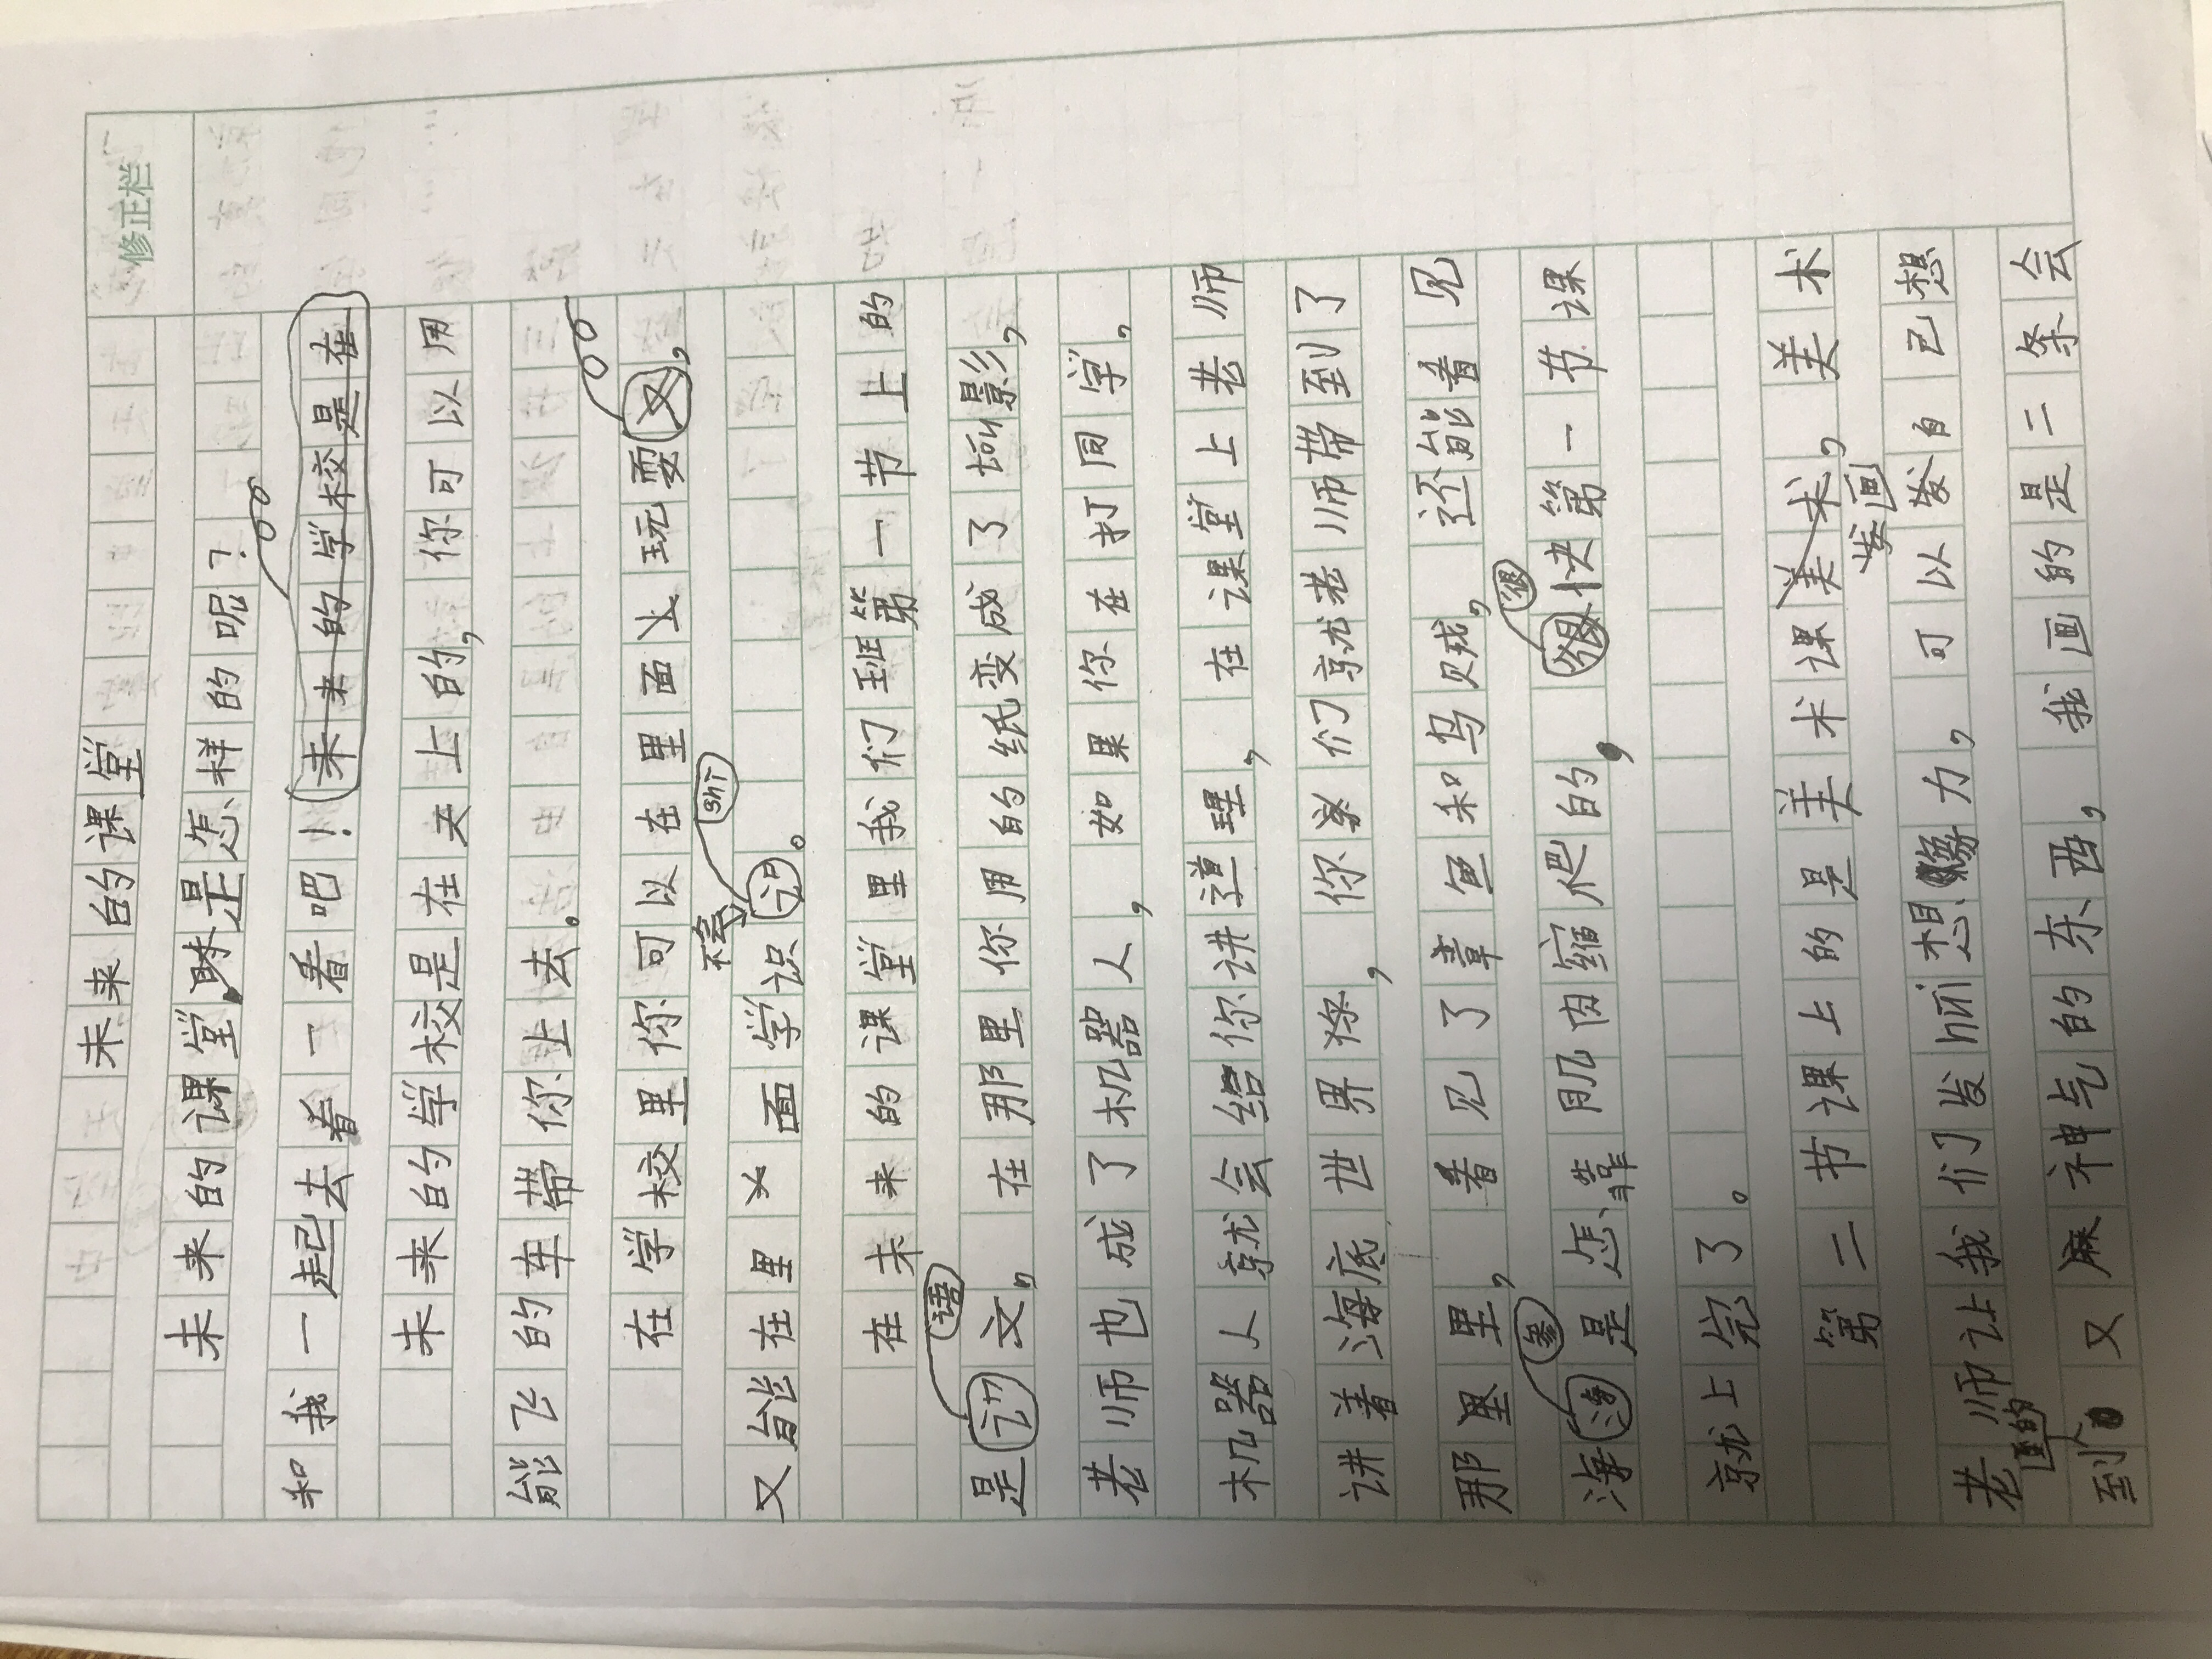 修正栏
未来的课堂
未来的课堂是怎样的呢？
和我一起去着一看吧！未来的学校是在
未来的学校是在天上的，你可以用
能飞的车带你上去。
在学校里你可以在里面上玩耍又，
shi
不会
又能在里面学识识。
在未来的课堂里我们班第一节上的
语
是文，在那里你用的纸变成了电影，
老师也成了机器人，如果你在打同学，
机器人就会给你讲道理，在课堂上老师
讲着海底世界，你们就老师带到了
那里，看见了章鱼和乌贼，还能看见
参
海是怎靠肌肉缩爬的，快第一节课
就上完了。
第二节课上的是美术课美术，美术
发画
老师让我们发hui想像力，可以发自己想
画的
到又麻神气的东西，我画的是二条会